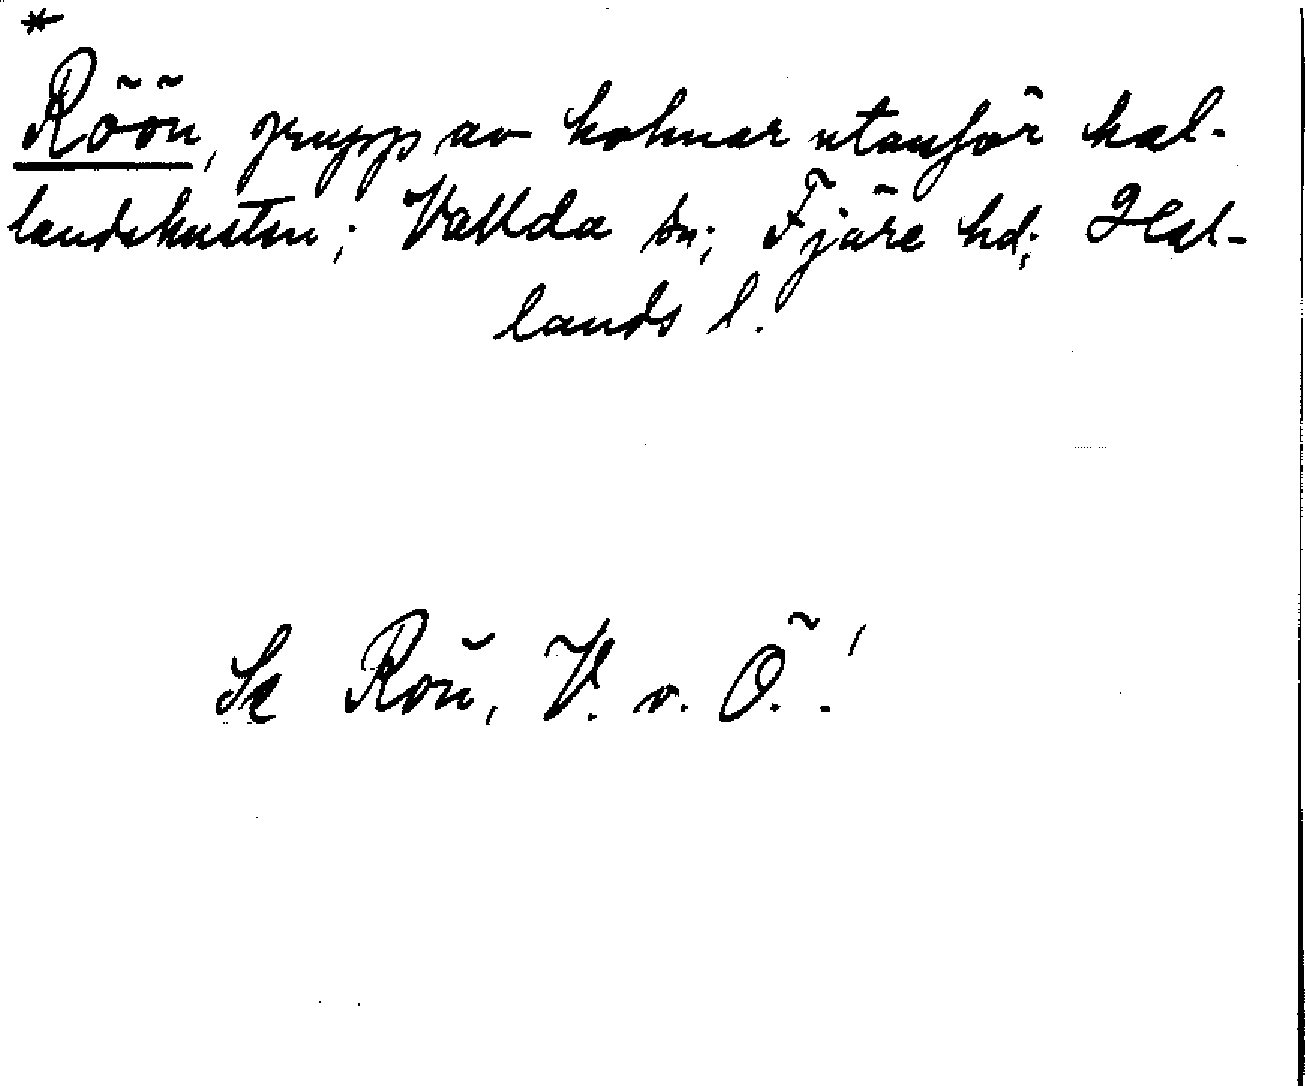 *
Röön, grupp av holmar utanför hal-
landskusten; Vallda sn; Fjäre hd; Hal-
lands l.
Se Rön, V. o. Ö.!